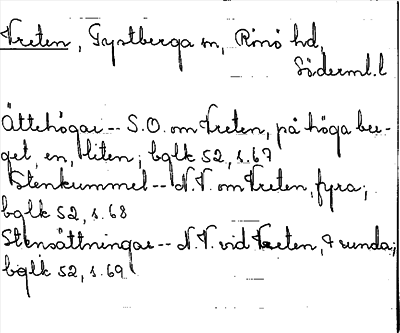 Vreten, Tystberga sn, Rönö hd,
Söderml. l
Ättehögar -- S.O. om Vreten, på höga ber-
get, en, liten; bglk 52, s. 67
Stenkummel -- N.V. om Vreten, fyra;
bglk 52, s. 68
Stensättningar -- N.V. vid Vreten, 7 runda;
bglk 52, s. 69